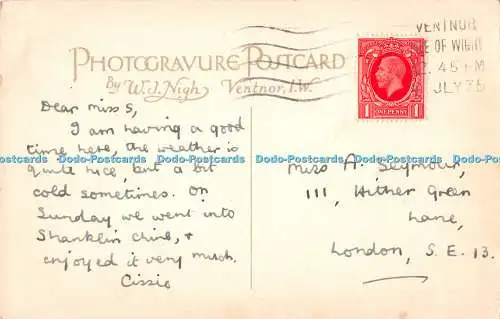 VENTNOR
E OF WIGH
2. 45 PM
JLY 35
PHOTOGRAVURE POSTCARD
By W.J. Nigh Ventnor, I.W.
1 ONE PENNY 1
Dear miss S,
I am having a good
time here, the weather is
quite nice, but a bit
cold sometimes. On
Sunday we went into
Shanklin Chine, &
enjoyed it very much.
Cissie
Miss A. Seymour,
111, Hither Green
Lane,
London, S. E. 13.
Dodo-Postcards Dodo-Postcards Dodo-Postcards Dodo-Postcards Dodo-Postcards